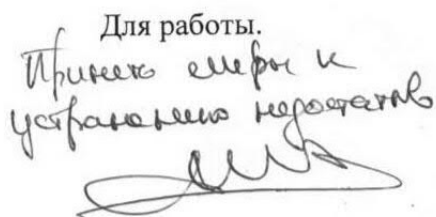 Для работы.
Принять меры к
устранению недостатков